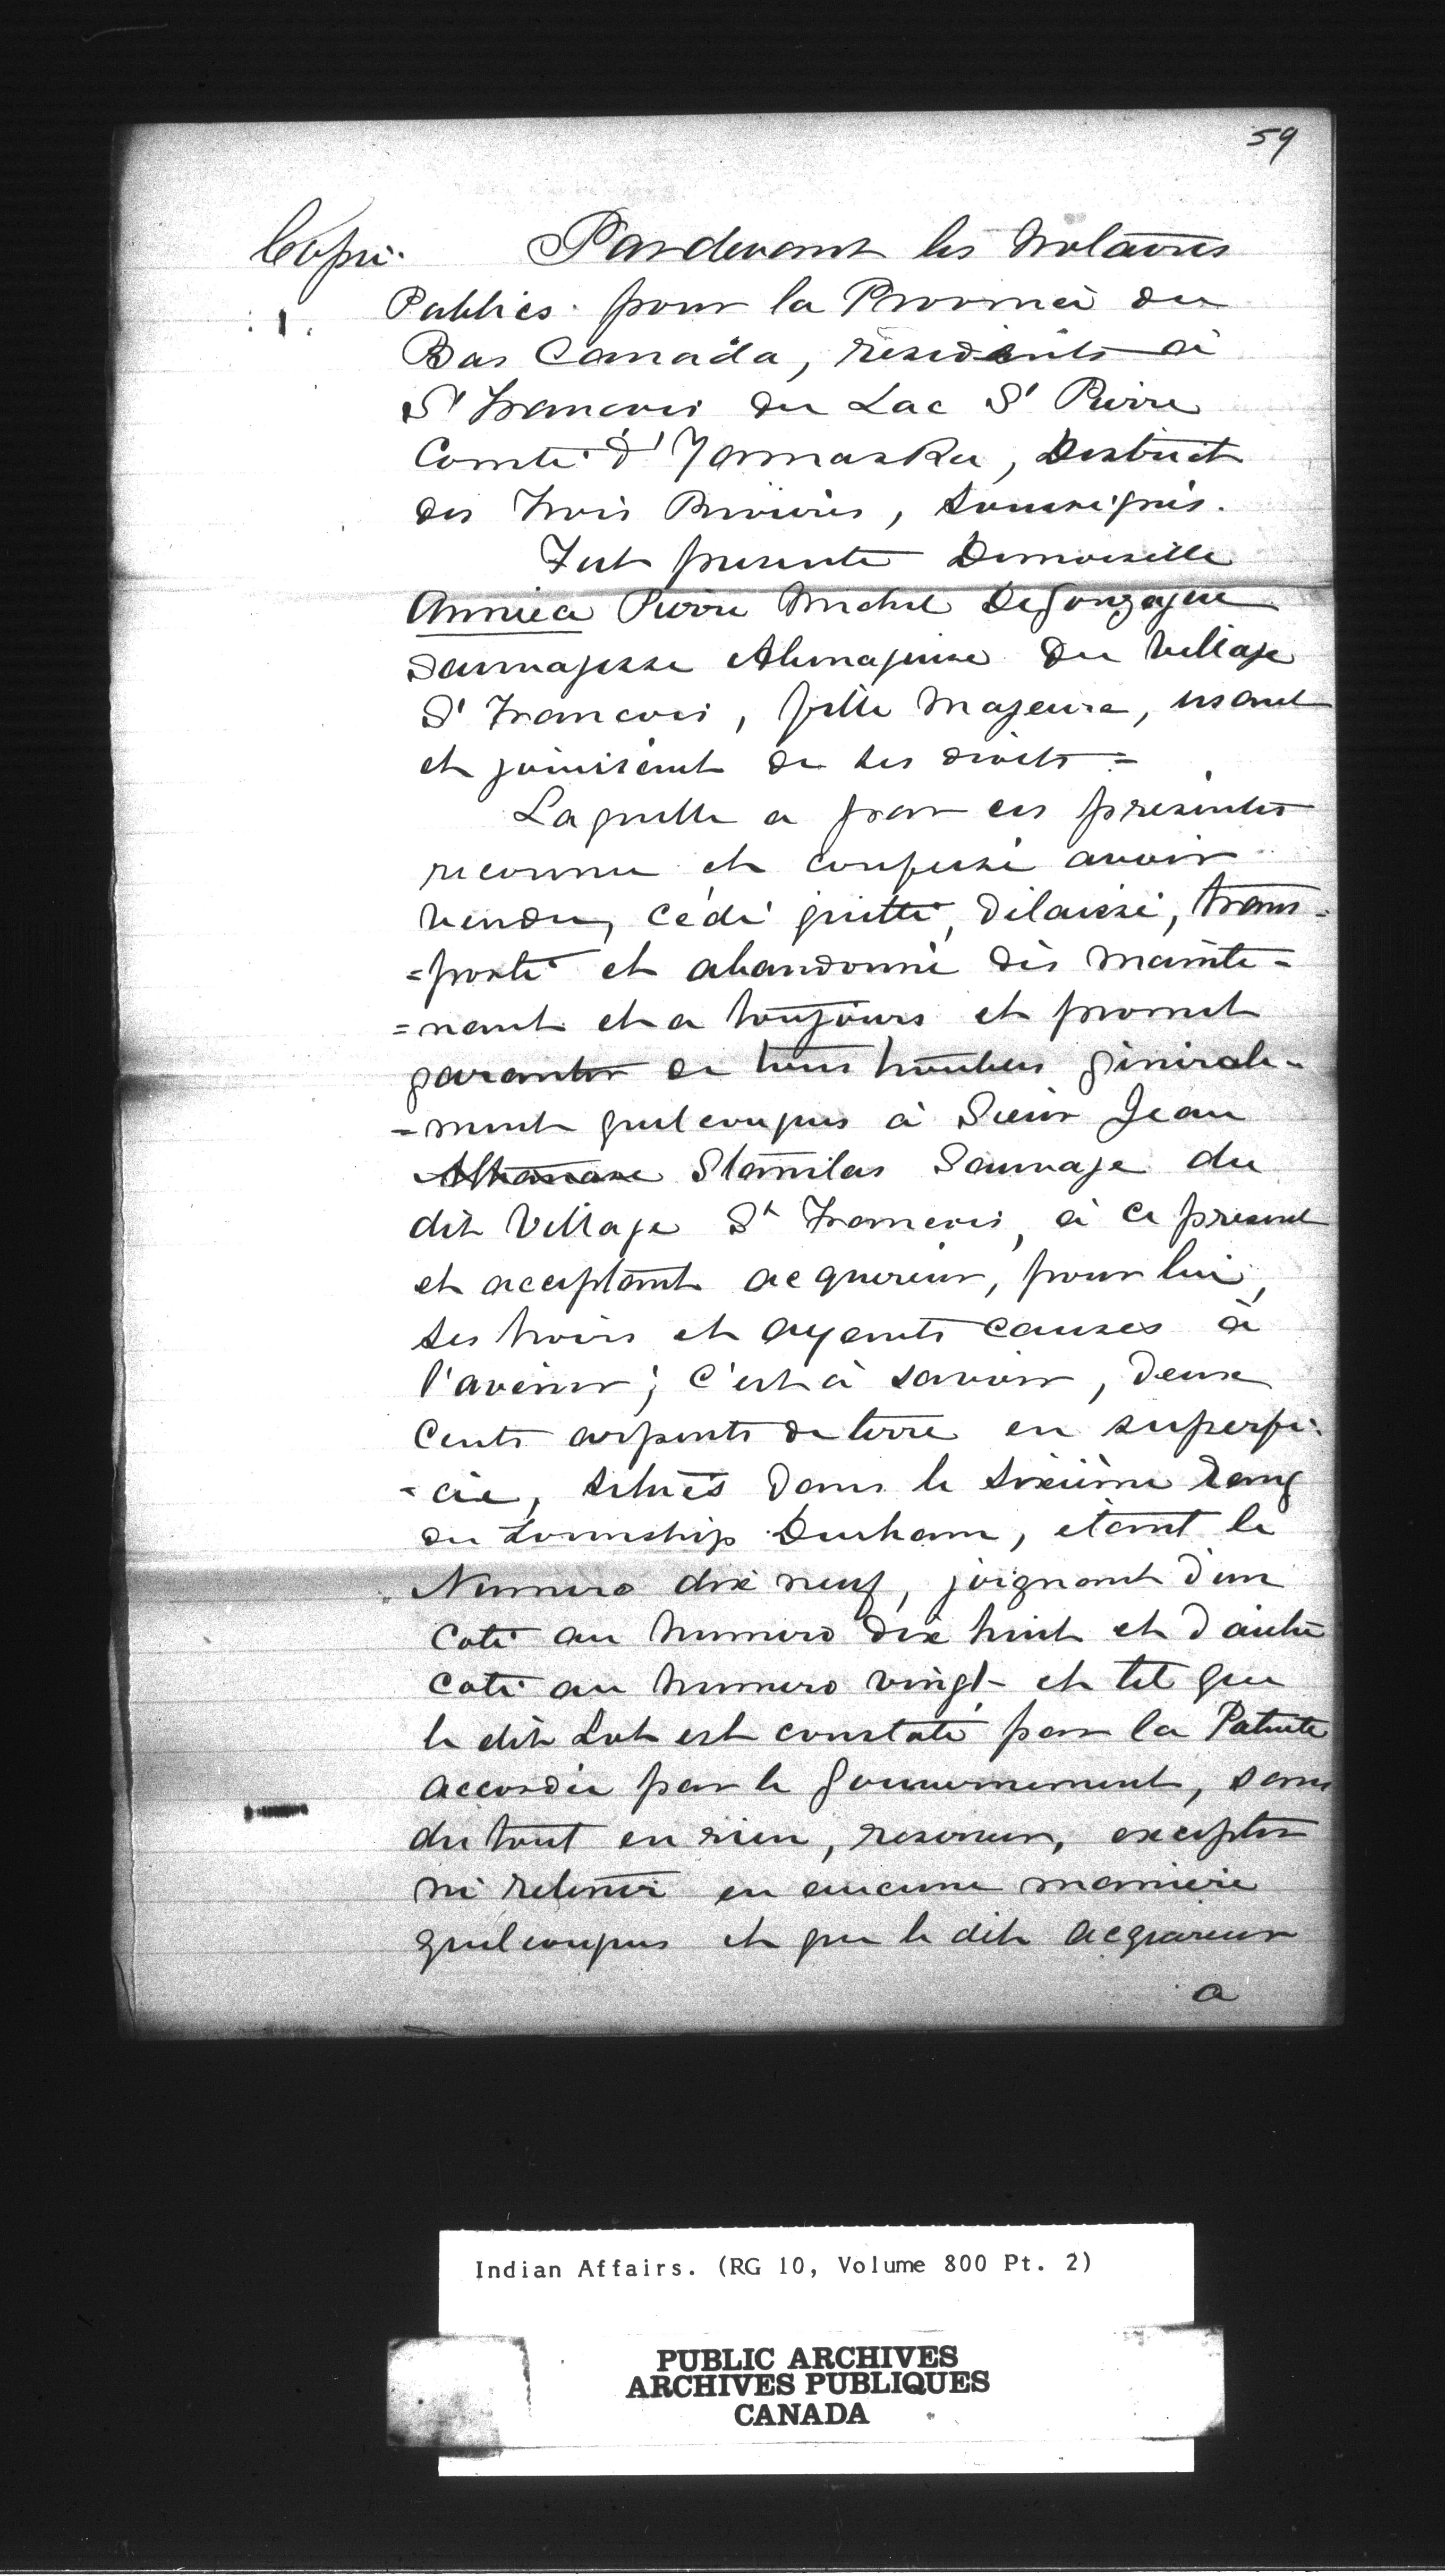 59
Copie. Pardevant les Notaires
1. Publics pour la Province du
Bas Canada, résidents à
St Francois du Lac St Pierre
Comté d'Yamaska, District
des Trois Rivières, soussignés.
Fut presente Demoiselle
Anniea Pierre Michel DeGonzague
Sauvagesse Abenaquise du Village
St Francois, fille majeure, usant
et jouisant de ses droits =
Laquelle a par ces présentes
reconnu et confessé avoir
vendu, cédé quitté, délaissé, trans-
=porté et abandonné dès mainte=
=nant et a toujours et promet
garantir de tous troubles générale-
=ment quelconques à Sieur Jean
Athanase Stanilas Sauvage du
dit Village St Francois, à ce present
et acceptant acquereur, pour lui,
ses hoirs et ayants causes à
l'avenir; c'est à savoir, deux
Cents arpents de terre en superfi-
-cie, situés dans le sixième rang
du Township Durham, étant le
Numero dix neuf, joignant d'un
coté au numero dix huit et d'autre
coté au numero vingt et tel que
le dit Lot est constaté par la Patente
accordée par le Gouvernement, sans
du tout en rien, reserver, excepter
ni retenir en aucune manière
quelconques et que le dit acquereur
a
Indian Affairs. (RG 10, Volume 800 Pt. 2)
PUBLIC ARCHIVES
ARCHIVES PUBLIQUES
CANADA